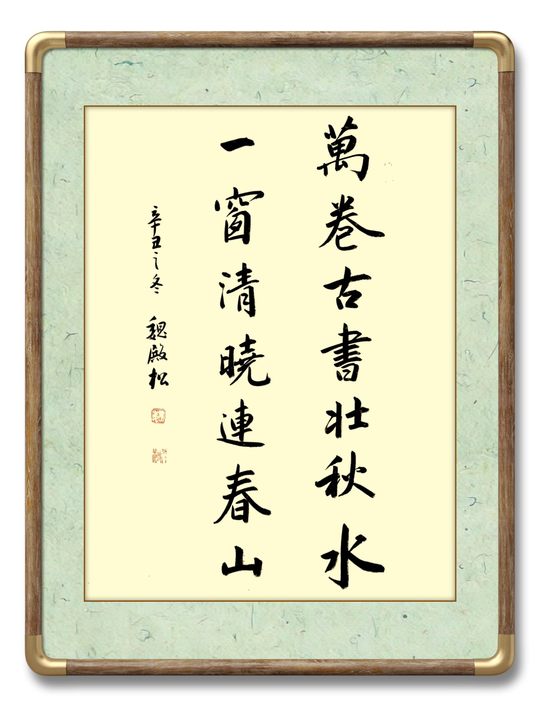 萬卷古書壮秋水
一窗清曉連春山
辛丑之冬 魏殿松